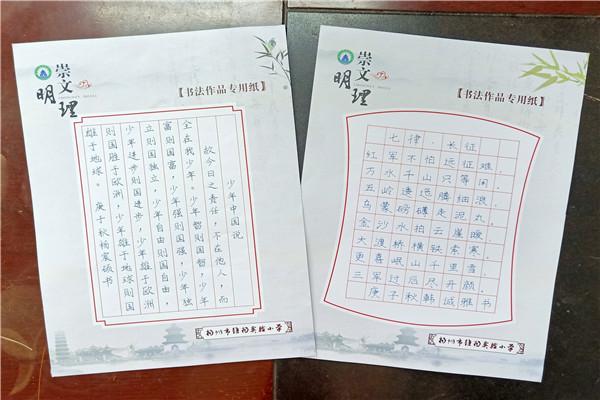 崇文
明理
【书法作品专用纸】
少年中国说
故今日之责任，不在他人，而
全在我少年。少年智则国智，少年
富则国富，少年强则国强，少年独
立则国独立，少年自由则国自由，
少年进步则国进步，少年雄于欧洲
则国胜于欧洲，少年雄于地球则国
雄于地球。 庚子秋杨宸书
扬州市维扬实验小学
崇文
明理
【书法作品专用纸】
七律·长征
红军不怕远征难，
万水千山只等闲。
五岭逶迤腾细浪，
乌蒙磅礴走泥丸。
金沙水拍云崖暖，
大渡桥横铁索寒。
更喜岷山千里雪，
三军过后尽开颜。
庚子秋韩诚雅书
扬州市维扬实验小学